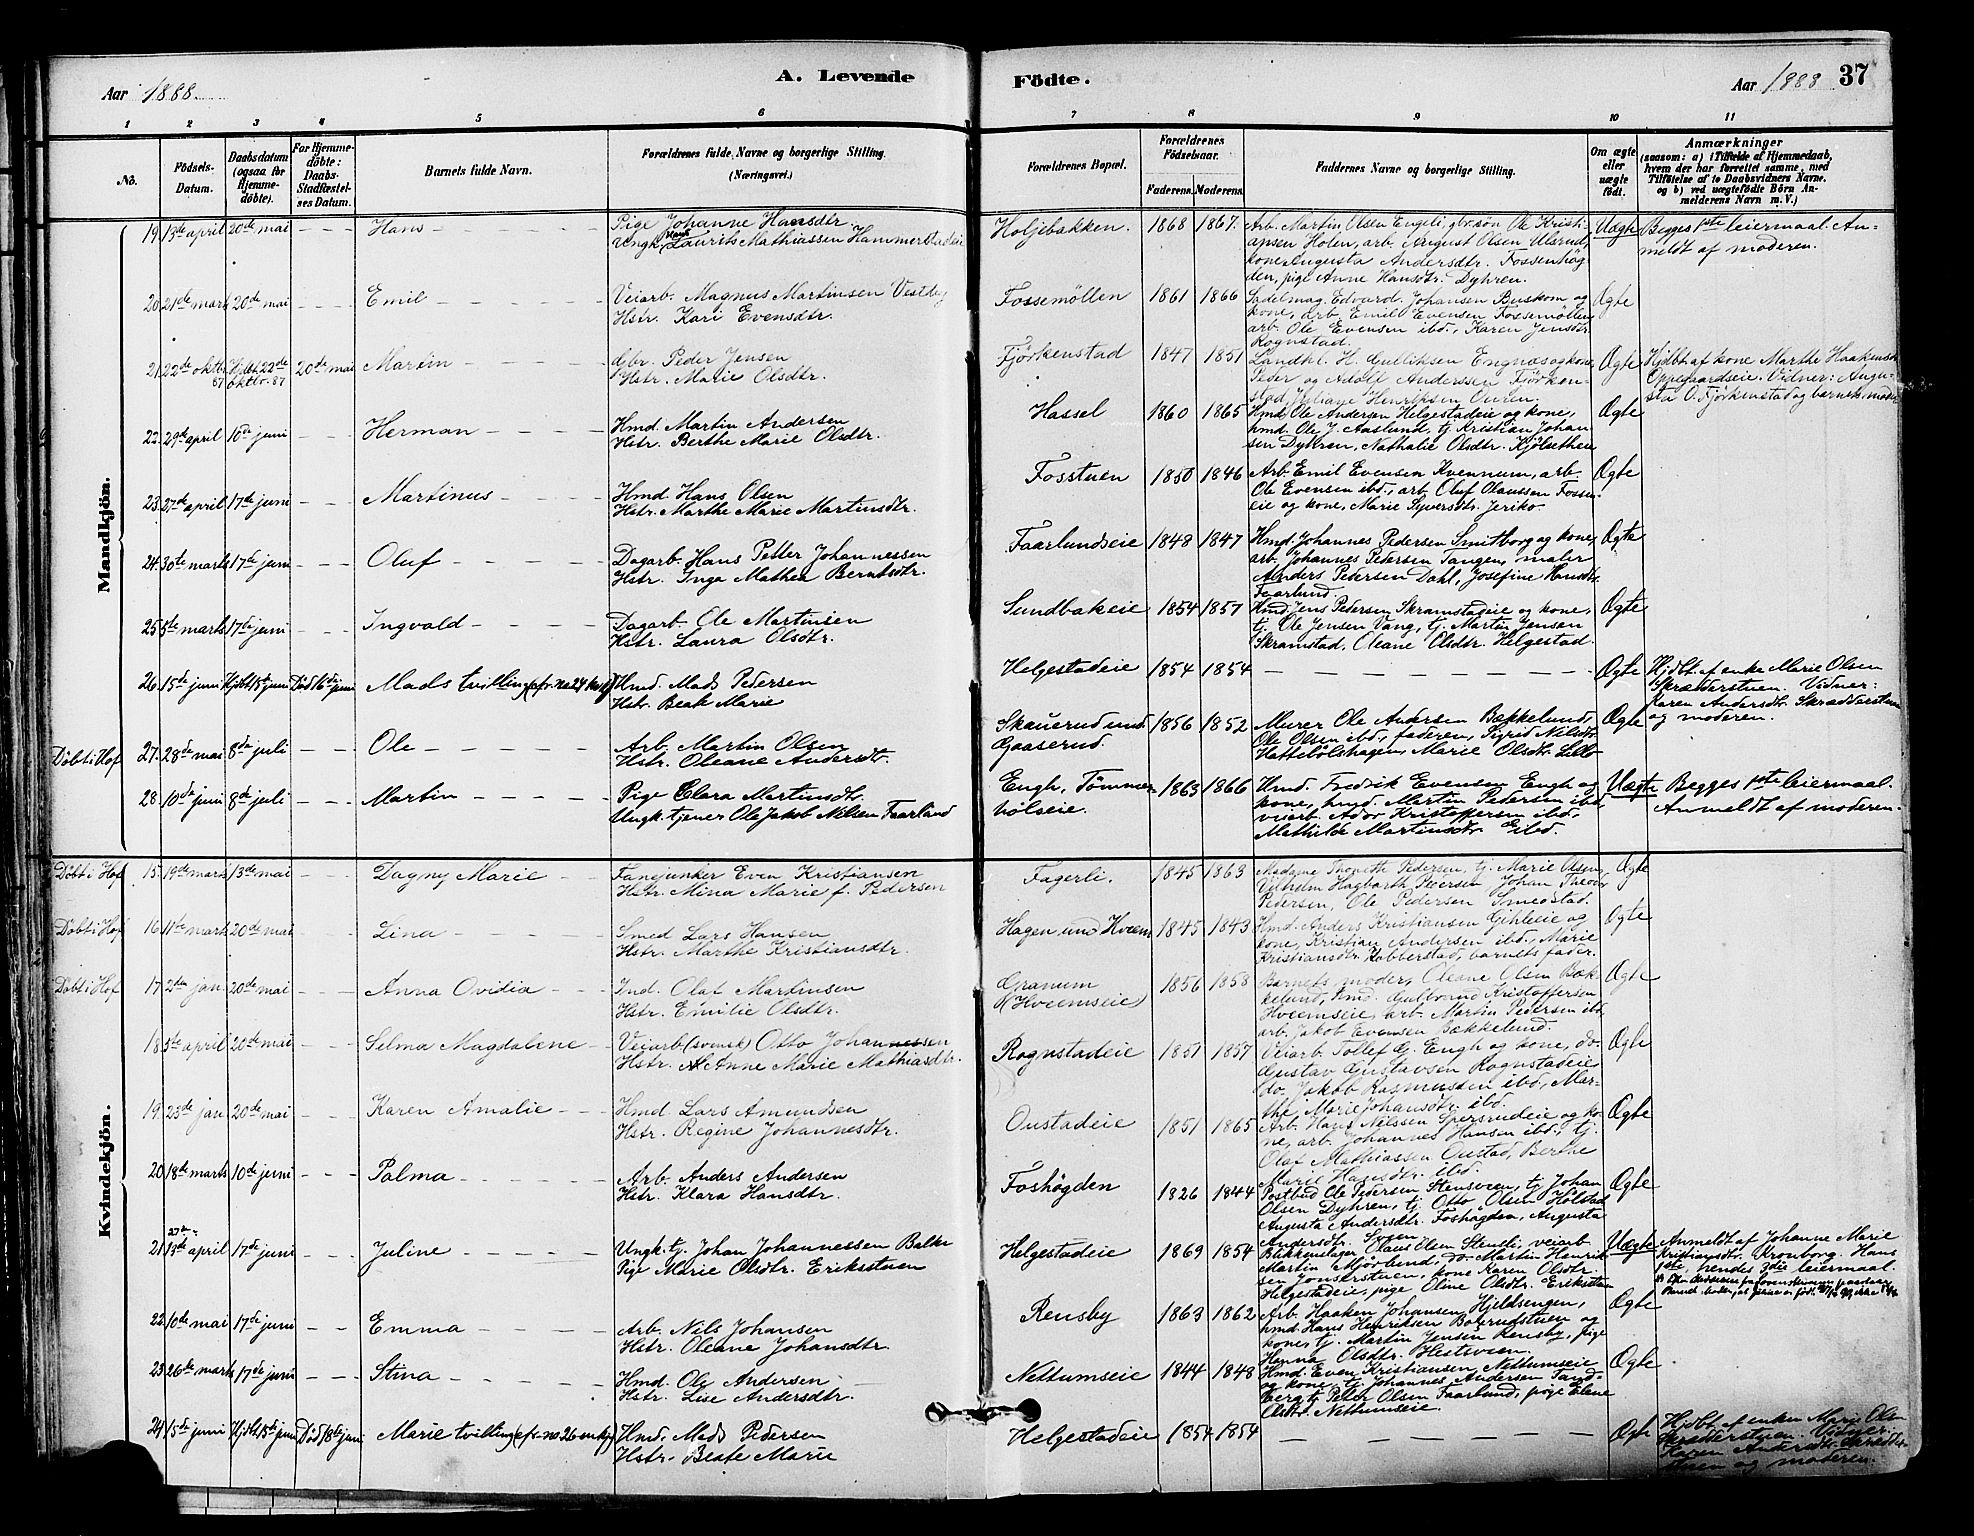 Aar 1888.
A. Levende
Födte.
Aar 1888
37
1 2 3 4 5 6 7 8 9 10 11
No.
Födsels-Datum.
Daabsdatum (ogsaa for Hjemmedöbte).
For Hjemmedöbte: Daabs-Stadfæstelses Datum.
Barnets fulde Navn.
Forældrenes fulde Navne og borgerlige Stilling. (Næringsvei.)
Forældrenes Bopæl.
Forældrenes Födselsaar.
Faderens. Moderens.
Faddernes Navne og borgerlige Stilling.
Om ægte eller uægte födt.
Anmærkninger
(saasom: a) i Tilfælde af Hjemmedaab, hvem der har forrettet samme, med Tilföielse af to Daabsvidners Navne, og b) ved uægtefödte Börn Anmelderens Navn m. V.)
Mandkjön.
19. 13de april 20de mai - - - Hans - - - Pige Johanne Hansdtr.
Ungk. Hans Laurits Mathiassen Hammerstadeie
Holjibakken. 1868 1867. Arb. Martin Olsen Engeli, gbr.sön Ole Kristi-
ansen Holen, arb. August Olsen Ulsrud,
kone Augusta Andersdtr. Fossenhög-
den, pige Anne Hansdtr. Dyhren.
Uægte Begges 1ste leiermaal. An-
meldt af moderen.
20. 21de marts 20de mai - - - Emil - - - Veiarb. Magnus Martinsen Vestby
Hstr. Kari Evensdtr.
Fossemöllen 1861 1866 Sadelmag. Edvard Johansen Buskom og
kone, arb. Emil Evensen Fossemöllen
arb. Ole Evensen ibd., Karen Jensdtr.
Rognstad.
Ægte
21. 22de oktbr. 87 Hjdbt 22de oktbr. 87 20de mai Martin - - - Gbr. Peder Jensen
Hstr. Marie Olsdtr.
Fjörkenstad 1847 1851 Landhl. H. Gulliksen Engnæs og kone,
Peder og Adolf Andersen Fjörken-
stad, Juliane Henriksen Onren.
Ægte Hjdbt af kone Marthe Haakensdtr.
Oppegaardseie. Vidner: Augu-
sta O. Fjörkenstad og barnets moder
22. 29de april 10de juni - - - Herman - - - Hmd. Martin Andersen
Hstr. Berthe Marie Olsdtr.
Hassel 1860 1865 Hmd. Ole Andersen Helgestadeie og kone,
hmd. Ole J. Aaslund, tj. Kristian Johan-
sen Dyhren, Nathalie Olsdtr. Kjölsethen
Ægte
23. 27de april 17de juni - - - Martinus - - - Hmd. Hans Olsen
Hstr. Marthe Marie Martinsdtr.
Fosstuen 1850 1846 Arb. Emil Evensen Kvennum, arb.
Ole Evensen ibd., arb. Oluf Olaussen Fossen-
eie og kone, Marie Syversdtr. Jeriko.
Ægte
24. 30te marts 17de juni - - - Oluf - - - Dagarb. Hans Petter Johannessen
Hstr. Inga Mathea Berntsdtr.
Faarlundseie 1848 1847 Hmd. Johannes Pedersen Smitborg og kone,
arb. Johannes Pedersen Tangen, maler
Anders Pedersen Dahl, Josefine Hansdtr.
Faarlund.
Ægte
25. 5te marts 17de juni - - - Ingvald - - - Dagarb. Ole Martinsen
Hstr. Laura Olsdtr.
Sundbakeie 1854 1857 Hmd. Jens Pedersen Skramstadeie og kone,
tj. Ole Jensen Vang, tj. Martin Jensen
Skramstad, Oleane Olsdtr. Helgestad.
Ægte
26. 15de juni Hjdbt 15de juni Död 16de juni Mads tvilling (cfr. no 24 kvkj) Hmd. Mads Pedersen
Hstr. Beate Marie
Helgestadeie 1854 1854 - - - Ægte Hjdbt. af enke Marie Olsen
Skrædderstuen. Vidner:
Karen Andersdtr. Skrædderstuen
og moderen.
Döbt i Hof 27. 28de mai 8de juli - - - Ole - - - Arb. Martin Olsen
Hstr. Oleane Andersdtr.
Skauerud und.
Gaaserud. 1856 1852 Murer Ole Andersen Bækkelund,
Ole Olsen ibd., faderen, Sigrid Nilsdtr.
Hattelölshagen, Marie Olsdtr. Lille
Ægte
28. 10de juni 8de juli - - - Martin - - - Pige Clara Martinsdtr.
Ungk. tjener Ole Jakob Nilsen Faarlund
Engh, Tömmer-
hölseie. 1863 1866 Hmd. Fredrik Evensen Engh og
kone, hmd. Martin Pedersen ibd.,
veiarb. Ador Kristoffersen ibd.,
Mathilde Martinsdtr. Eibd.
Uægte Begges 1ste leiermaal.
Anmeldt af moderen.
Kvindekjön.
Döbt i Hof 15. 19de marts 13de mai - - - Dagny Marie - - Fanejunker Even Kristiansen
Hstr. Mina Marie f. Pedersen
Fagerli. 1845 1863 Madame Thorette Pedersen, tj. Marie Olsen,
Vilhelm Hagbarth Pedersen Johan Theodor
Pedersen, Ole Pedersen Smedstad.
Ægte
Döbt i Hof 16. 11te marts 20de mai - - - Lina - - - Smed Lars Hansen
Hstr. Marthe Kristiansdtr.
Hagen und Kveem 1845 1843 Hmd. Anders Kristiansen Gihleie og
kone, Kristian Andersen ibd., Marie
Kristiansdtr. Kobberstad, barnets fader.
Ægte
Döbt i Hof 17. 2den jan. 20de mai - - - Anna Ovidia - - - Ind. Olaf Martinsen
Hstr. Emilie Olsdtr.
Granum
(Hveemseie) 1856 1858 Barnets moder, Oleane Olsen Bæk-
kelund, hmd. Gulbrand Kristoffersen
Hveemseie, arb. Martin Pedersen ibd.
arb. Jakob Evensen Bækkelund.
Ægte
18. 5te april 20de mai - - - Selma Magdalene - - Veiarb. (svensk) Otto Johannessen
Hstr. Anne Marie Mathiasdtr.
Rognstadeie 1851 1857 Veiarb. Tollef G. Engh og kone, do.
Gustav Gustavsen Rognstadeie
do. Jakob Rasmussen ibd., Mar-
the Marie Johansdtr. ibd.
Ægte
19. 23de jan 20de mai - - - Karen Amalie - - Hmd. Lars Amundsen
Hstr. Regine Johannesdtr.
Oustadeie 1851 1865 Arb. Hans Nilssen Sperrudeie og ko-
ne, arb. Johannes Hansen ibd., tj.
Olaf Mathiassen Oustad, Berthe
Marie Hansdtr. ibd.
Ægte
20. 18de marts 10de juni - - - Palma - - - Arb. Anders Andersen
Hstr. Klara Hansdtr.
Foshögden 1826 1844 Postbud Ole Pedersen Stensveen, tj. Johan
Olsen Dyhren, tj. Otto Olsen Holstad
Augusta Andersdtr. Foshögden, Augusta
Andersdtr.
Ægte
21. 27de 13de april 17de juni - - - Juline - - - Ungk. tj. Johan Johannessen Balke
Pige Marie Olsdtr. Eriksstuen
Helgestadeie 1869 1854 Blikkenslager Olaus Olsen Stensli, veiarb.
Martin Mjörlund, do. Martin Henrik-
sen Jonserstuen, kone Karen Olsdtr.
Helgestadeie, pige Oline Olsdtr. Eriksstuen
Uægte Anmeldt af Johanne Marie
Kristiansdtr. Kronborg. Hans
1ste, hendes 3die leiermaal.
22. 10de mai 17de juni - - - Emma - - - Arb. Nils Johansen
Hstr. Oleane Johansdtr.
Rensby 1863 1862 Arb. Haaken Johansen Hjeldsengen,
hmd. Hans Henriksen Bolerudstuen og
kone, tj. Martin Jensen Rensby, pige
Hanna Olsdtr. Hestsveen.
Ægte
23. 26de marts 17de juni - - - Stina - - - Hmd. Ole Andersen
Hstr. Lise Andersdtr.
Nettumseie 1844 1848 Hmd. Even Kristiansen Nettumseie
og kone, tj. Johannes Andersen Sand-
berg, tj. Petter Olsen Faarlund, pige Elene
Olsdtr. Nettumseie.
Ægte
24. 15de juni Hjdbt 15de juni Död 18de juni Marie tvilling (cfr. no 26 mkj) Hmd. Mads Pedersen
Hstr. Beate Marie
Helgestadeie 1854 1854 - - - Ægte Hjdbt. af enken Marie Olsen
Skrædderstuen. Vidner:
Karen Andersdtr. Skrædder-
stuen og moderen.